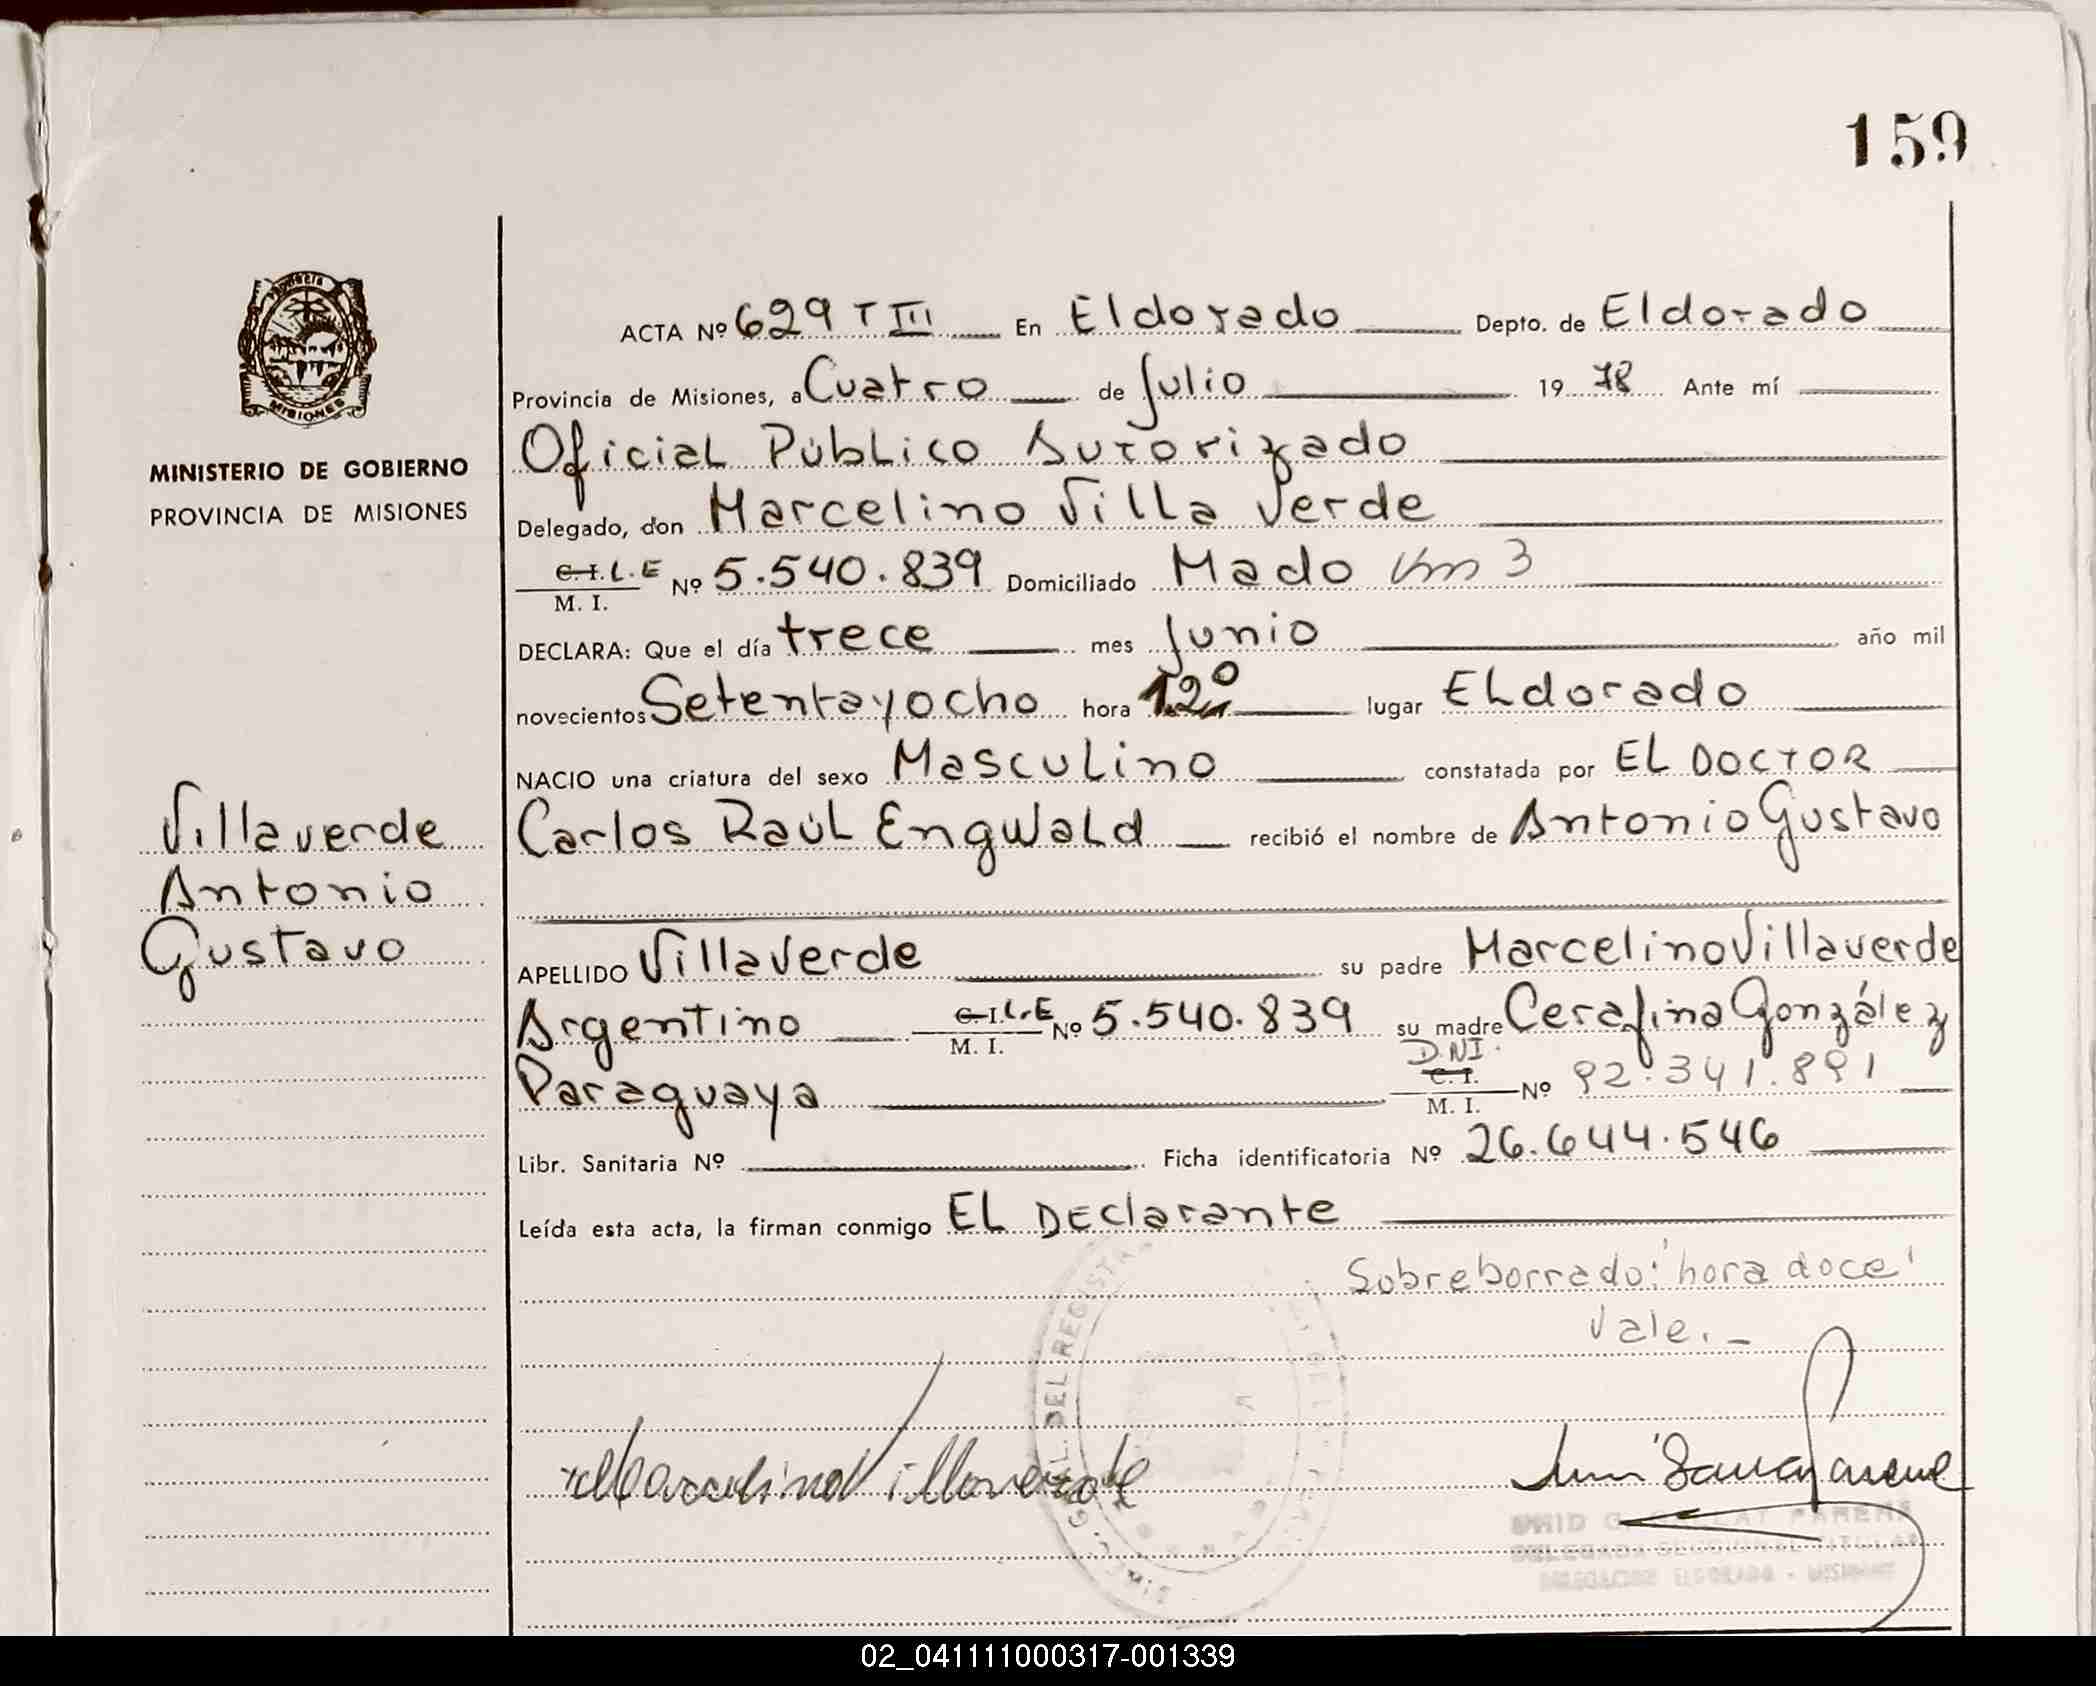 159
ACTA Nº 629 T III En Eldorado Depto. de Eldorado
Provincia de Misiones, a Cuatro de Julio 19 78 Ante mí
Oficial Público Autorizado
MINISTERIO DE GOBIERNO
PROVINCIA DE MISIONES
MISIONES
Delegado, don Marcelino Villa Verde
C.I. L.E Nº 5.540.839 Domiciliado Mado Km 3
M. I.
DECLARA: Que el día trece mes Junio año mil
novecientos Setentayocho hora 12º lugar ELdorado
NACIO una criatura del sexo Masculino constatada por EL DOCTOR
Villaverde
Antonio
Gustavo
Carlos Raúl Engwald recibió el nombre de Antonio Gustavo
APELLIDO Villaverde su padre Marcelino Villaverde
Argentino C.I. L.E Nº 5.540.839 su madre Cerafina González
M. I.
D.N.I.
Paraguaya C.I. Nº 92.341.891
M. I.
Libr. Sanitaria Nº Ficha identificatoria Nº 26.644.546
Leída esta acta, la firman conmigo EL DEClarante
Sobreborrado: 'hora doce'
Vale.-
Marcelino Villaverde
DEL REGISTR
DELEGADA SECCIONAL TITULAR
DELEGACION ELDORADO - MISIONES
02_041111000317-001339